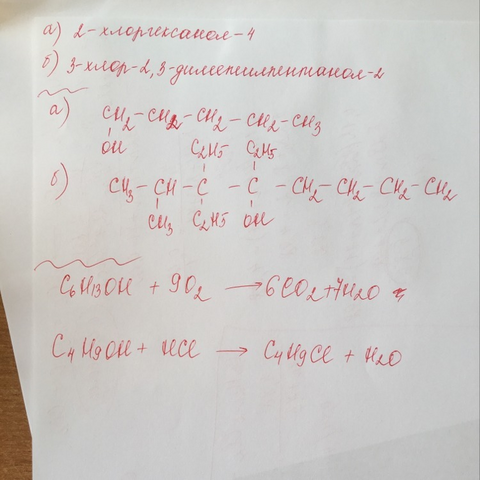 а) 2-хлоргексанол-4
б) 3-хлор-2,3-диметилпентанол-2
а) CH2-CH2-CH2-CH2-CH3
OH C2H5 C2H5
б) CH3-CH-C-C-CH2-CH2-CH2-CH2
CH3 C2H5 OH
C6H13OH + 9O2 → 6CO2+7H2O
C4H9OH + HCl → C4H9Cl + H2O